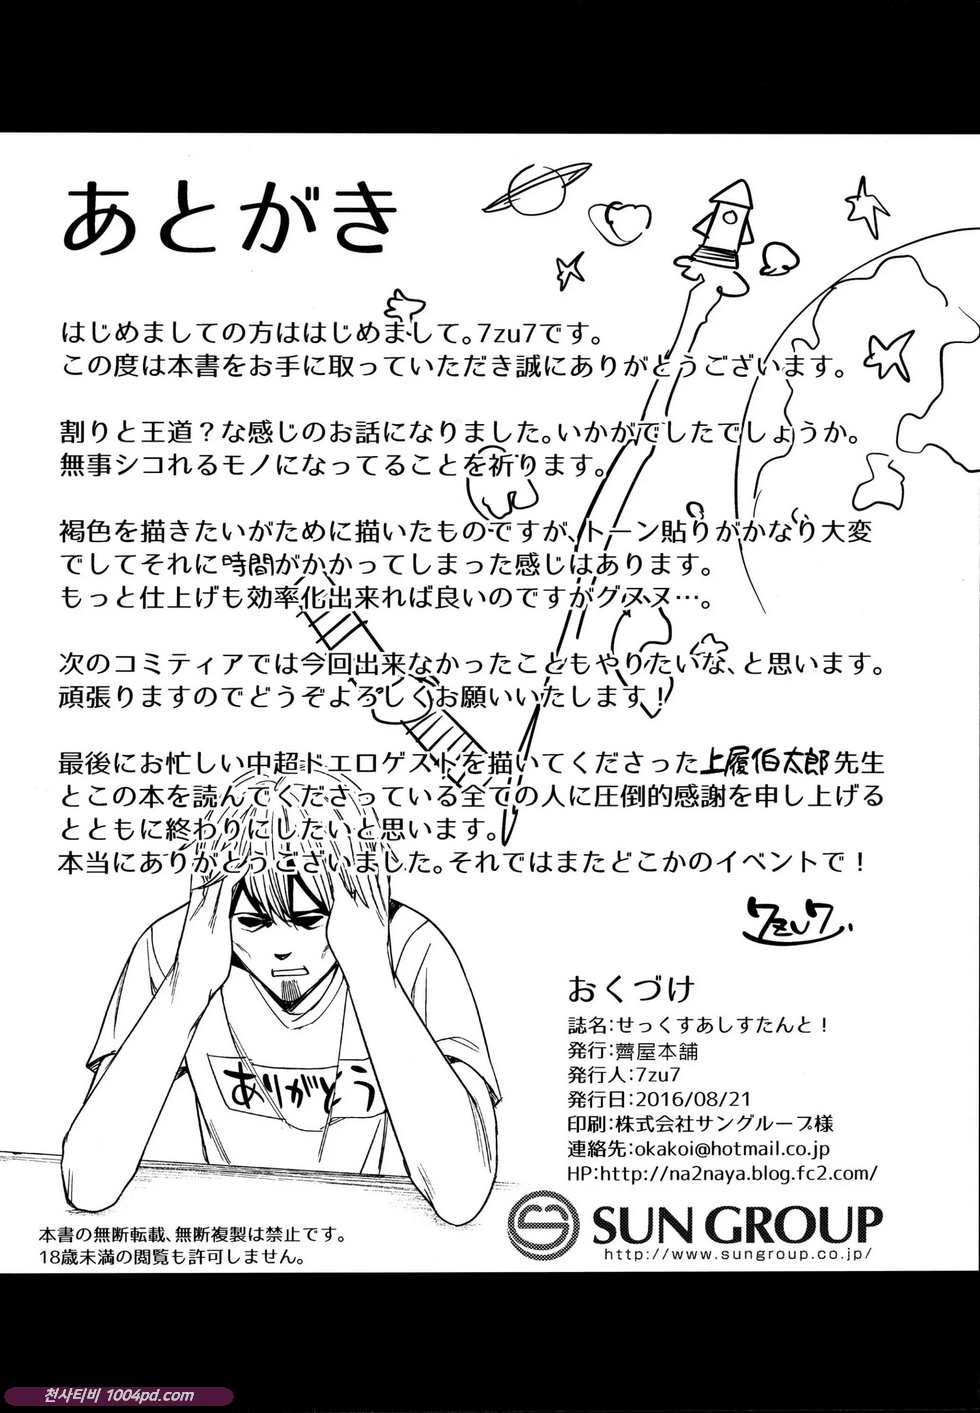 あとがき
はじめましての方ははじめまして。7zu7です。
この度は本書をお手に取っていただき誠にありがとうございます。
割りと王道？な感じのお話になりました。いかがでしたでしょうか。
無事シコれるモノになってることを祈ります。
褐色を描きたいがために描いたものですが、トーン貼りがかなり大変
でしてそれに時間がかかってしまった感じはあります。
もっと仕上げも効率化出来れば良いのですがグヌヌ…。
次のコミティアでは今回出来なかったこともやりたいな、と思います。
頑張りますのでどうぞよろしくお願いいたします！
最後にお忙しい中超ドエロゲストを描いてくださった上履伯太郎先生
とこの本を読んでくださっている全ての人に圧倒的感謝を申し上げる
とともに終わりにしたいと思います。
本当にありがとうございました。それではまたどこかのイベントで！
7zu7.
ありがとう
おくづけ
誌名：せっくすあしすたんと！
発行：薺屋本舗
発行人：7zu7
発行日：2016/08/21
印刷：株式会社サングループ様
連絡先：okakoi@hotmail.co.jp
HP：http://na2naya.blog.fc2.com/
SUN GROUP
http://www.sungroup.co.jp/
本書の無断転載、無断複製は禁止です。
18歳未満の閲覧も許可しません。
천사티비 1004pd.com